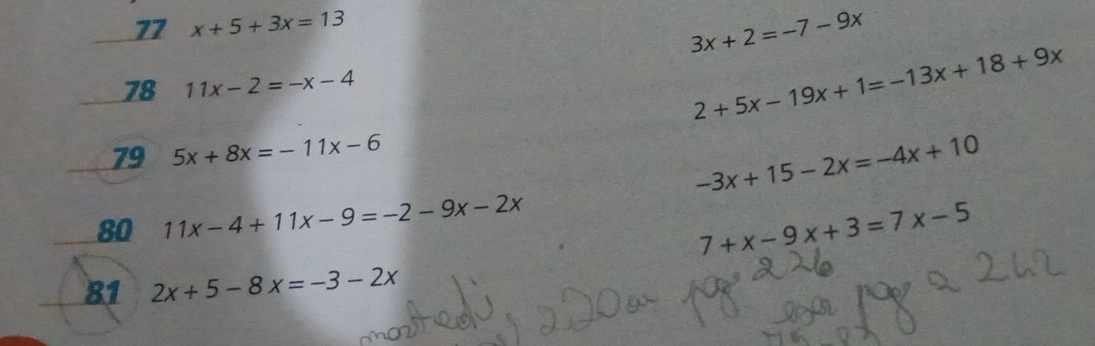 77 x + 5 + 3x = 13
3x + 2 = –7 – 9x
78 11x – 2 = –x – 4
2 + 5x – 19x + 1 = –13x + 18 + 9x
79 5x + 8x = – 11x – 6
–3x + 15 – 2x = –4x + 10
80 11x – 4 + 11x – 9 = –2 – 9x – 2x
7 + x – 9x + 3 = 7x – 5
81 2x + 5 – 8x = –3 – 2x
martedì pag 226
pag 242